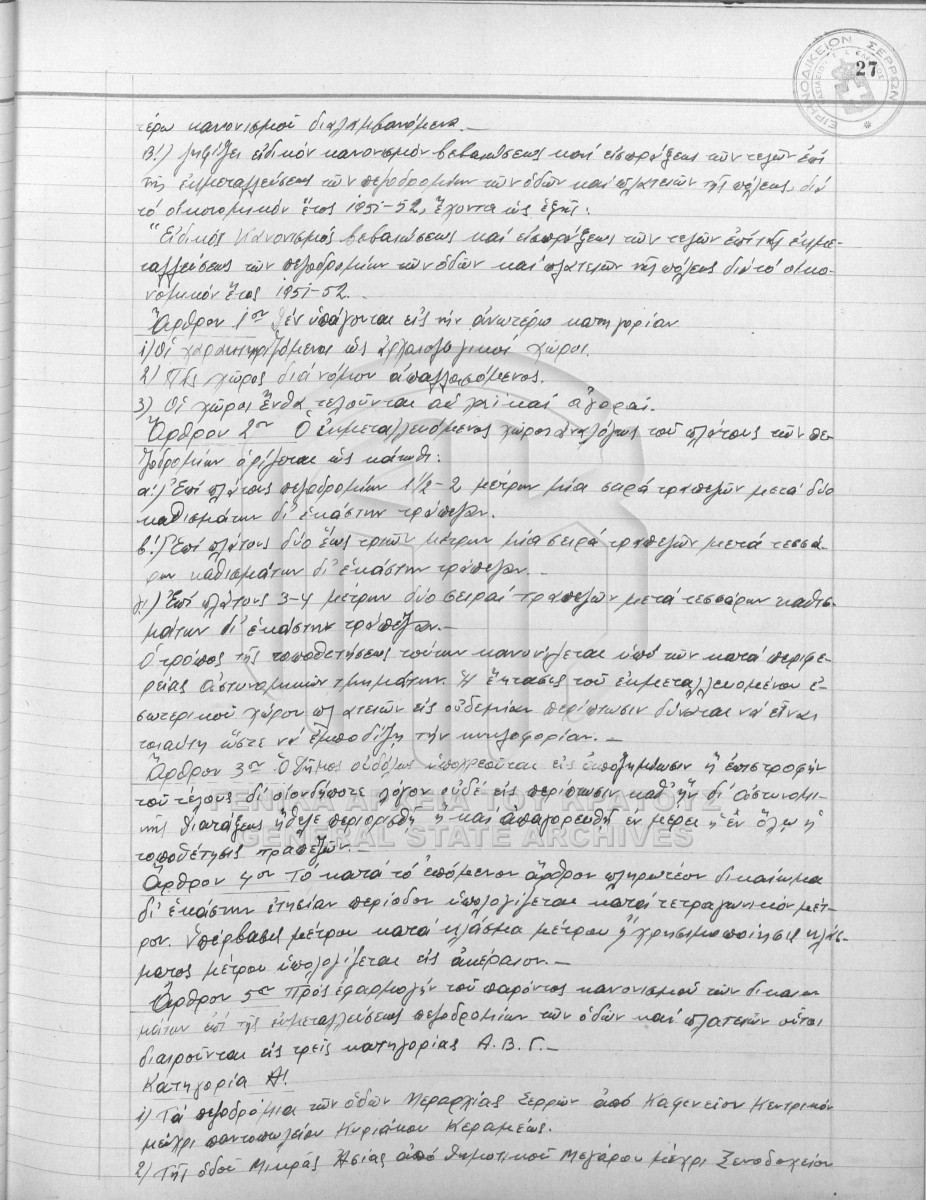 ΕΙΡΗΝΟΔΙΚΕΙΟΝ ΣΕΡΡΩΝ
27
τέρω κανονισμοῦ διαλαμβανόμενα.—
Β!) Ψηφίζει εἰδικόν κανονισμόν βεβαιώσεως καί εἰσπράξεως τῶν τελῶν ἐπί
τῆς ἐκμεταλλεύσεως τῶν πεζοδρομίων τῶν ὁδῶν καί πλατειῶν τῆς πόλεως, διά
τό οἰκονομικόν ἔτος 1951-52, ἔχοντα ὡς ἑξῆς:
"Εἰδικός Κανονισμός βεβαιώσεως καί εἰσπράξεως τῶν τελῶν ἐπί τῆς ἐκμε-
ταλλεύσεως τῶν πεζοδρομίων τῶν ὁδῶν καί πλατειῶν τῆς πόλεως διά τό οἰκο-
νομικόν ἔτος 1951-52.
Ἄρθρον 1ον Δέν ὑπάγονται εἰς τήν ἀνωτέρω κατηγορίαν
1) Οἱ χαρακτηριζόμενοι ὡς ἀρχαιολογικοί χῶροι.
2) Πᾶς χῶρος διά νόμου ἀπαλλασσόμενος.
3) Οἱ χῶροι ἔνθα τελοῦνται αἱ λαϊκαί ἀγοραί.
Ἄρθρον 2ον Ὁ ἐκμεταλλευόμενος χῶρος ἀναλόγως τοῦ πλάτους τῶν πε-
ζοδρομίων ὁρίζεται ὡς κάτωθι:
α!) Ἐπί πλάτους πεζοδρομίων 1½-2 μέτρων μία σειρά τραπεζῶν μετά δύο
καθισμάτων δι' ἑκάστην τράπεζαν.
β!) Ἐπί πλάτους δύο ἕως τριῶν μέτρων μία σειρά τραπεζῶν μετά τεσσά-
ρων καθισμάτων δι' ἑκάστην τράπεζαν.—
γ!) Ἐπί πλάτους 3-4 μέτρων δύο σειραί τραπεζῶν μετά τεσσάρων καθισ-
μάτων δι' ἑκάστην τράπεζαν.—
Ὁ τρόπος τῆς τοποθετήσεως τούτων κανονίζεται ὑπό τῶν κατά περιφε-
ρείας ἀστυνομικῶν τμημάτων. Ἡ ἔκτασις τοῦ ἐκμεταλλευομένου ἐ-
σωτερικοῦ χώρου πλατειῶν εἰς οὐδεμίαν περίπτωσιν δύναται νά εἶναι
τοιαύτη ὥστε νά ἐμποδίζῃ τήν κυκλοφορίαν.—
Ἄρθρον 3ον Ὁ Δῆμος οὐδόλως ὑποχρεοῦται εἰς ἀποζημίωσιν ἤ ἐπιστροφήν
τοῦ τέλους δι' οἱονδήποτε λόγον οὐδέ εἰς περίπτωσιν καθ' ἥν δι' ἀστυνομι-
κῆς διατάξεως ἤθελε περιορισθῇ ἤ καί ἀπαγορευθῇ ἐν μέρει ἤ ἐν ὅλῳ ἡ
τοποθέτησις τραπεζῶν.—
Ἄρθρον 4ον Τό κατά τό ἑπόμενον ἄρθρον πληρωτέον δικαίωμα
δι' ἑκάστην ἐτησίαν περίοδον ὑπολογίζεται κατά τετραγωνικόν μέτ-
ρον. Ὑπέρβασις μέτρου κατά κλάσμα μέτρου ἤ χρησιμοποίησις κλάσ-
ματος μέτρου ὑπολογίζεται εἰς ἀκέραιον.—
Ἄρθρον 5ον Πρός ἐφαρμογήν τοῦ παρόντος κανονισμοῦ τῶν δικαιω
μάτων ἐπί τῆς ἐκμεταλλεύσεως πεζοδρομίων τῶν ὁδῶν καί πλατειῶν οὗτοι
διαιροῦνται εἰς τρεῖς κατηγορίας Α.Β.Γ.—
Κατηγορία Α!
1) Τά πεζοδρόμια τῶν ὁδῶν Μεραρχίας Σερρῶν ἀπό Καφενεῖον Κεντρικόν
μέχρι παντοπωλείου Κυριάκου Κεραμέως.
2) Τῆς ὁδοῦ Μικρᾶς Ἀσίας ἀπό Δημοτικοῦ Μεγάρου μέχρι Ξενοδοχείου
ΓΕΝΙΚΑ ΑΡΧΕΙΑ ΤΟΥ ΚΡΑΤΟΥΣ
GENERAL STATE ARCHIVES